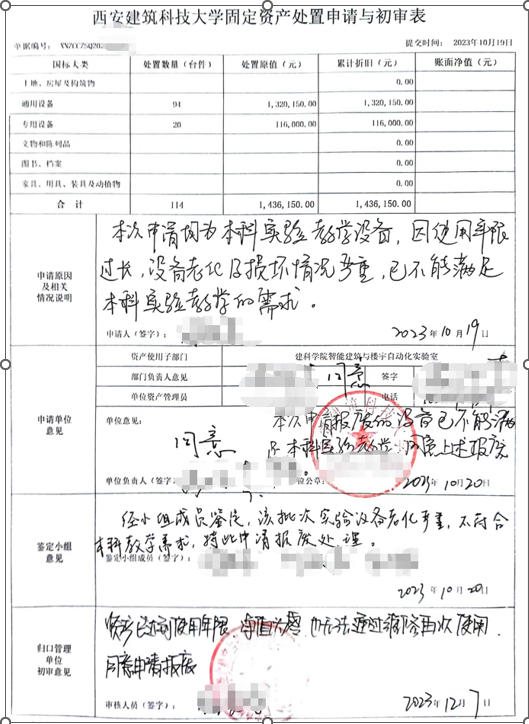 西安建筑科技大学固定资产处置申请与初审表
单据编号： 提交时间： 2023年10月19日
国标大类 处置数量（台件） 处置原值（元） 累计折旧（元） 账面净值（元）
土地、房屋及构筑物 0.00
通用设备 94 1,320,150.00 1,320,150.00
专用设备 20 116,000.00 116,000.00
文物和陈列品 0.00
图书、档案 0.00
家具、用具、装具及动植物 0.00
合 计 114 1,436,150.00 1,436,150.00
申请原因及相关情况说明
本次申请均为本科实验教学设备，因使用年限
过长，设备老化及损坏情况严重，已不能满足
本科实验教学的需求。
申请人（签字）： 2023年10月19日
申请单位意见
资产使用子部门 建科学院智能建筑与楼宇自动化实验室
部门负责人意见 同意 签字
单位资产管理员 电话
单位意见：
同意
本次申请报废的设备已不能满
足本科实验教学 同意上述报废
单位负责人（签字）： 单位公章： 2023年10月20日
鉴定小组意见
经小组成员鉴定，该批次实验设备老化严重，不符合
本科教学需求，特此申请报废处理。
鉴定小组成员（签字）：
2023年10月20日
归口管理单位初审意见
资产已达到使用年限，净值为零，也无法通过维修再次使用
同意申请报废
审核人员（签字）： 2023年12月7日